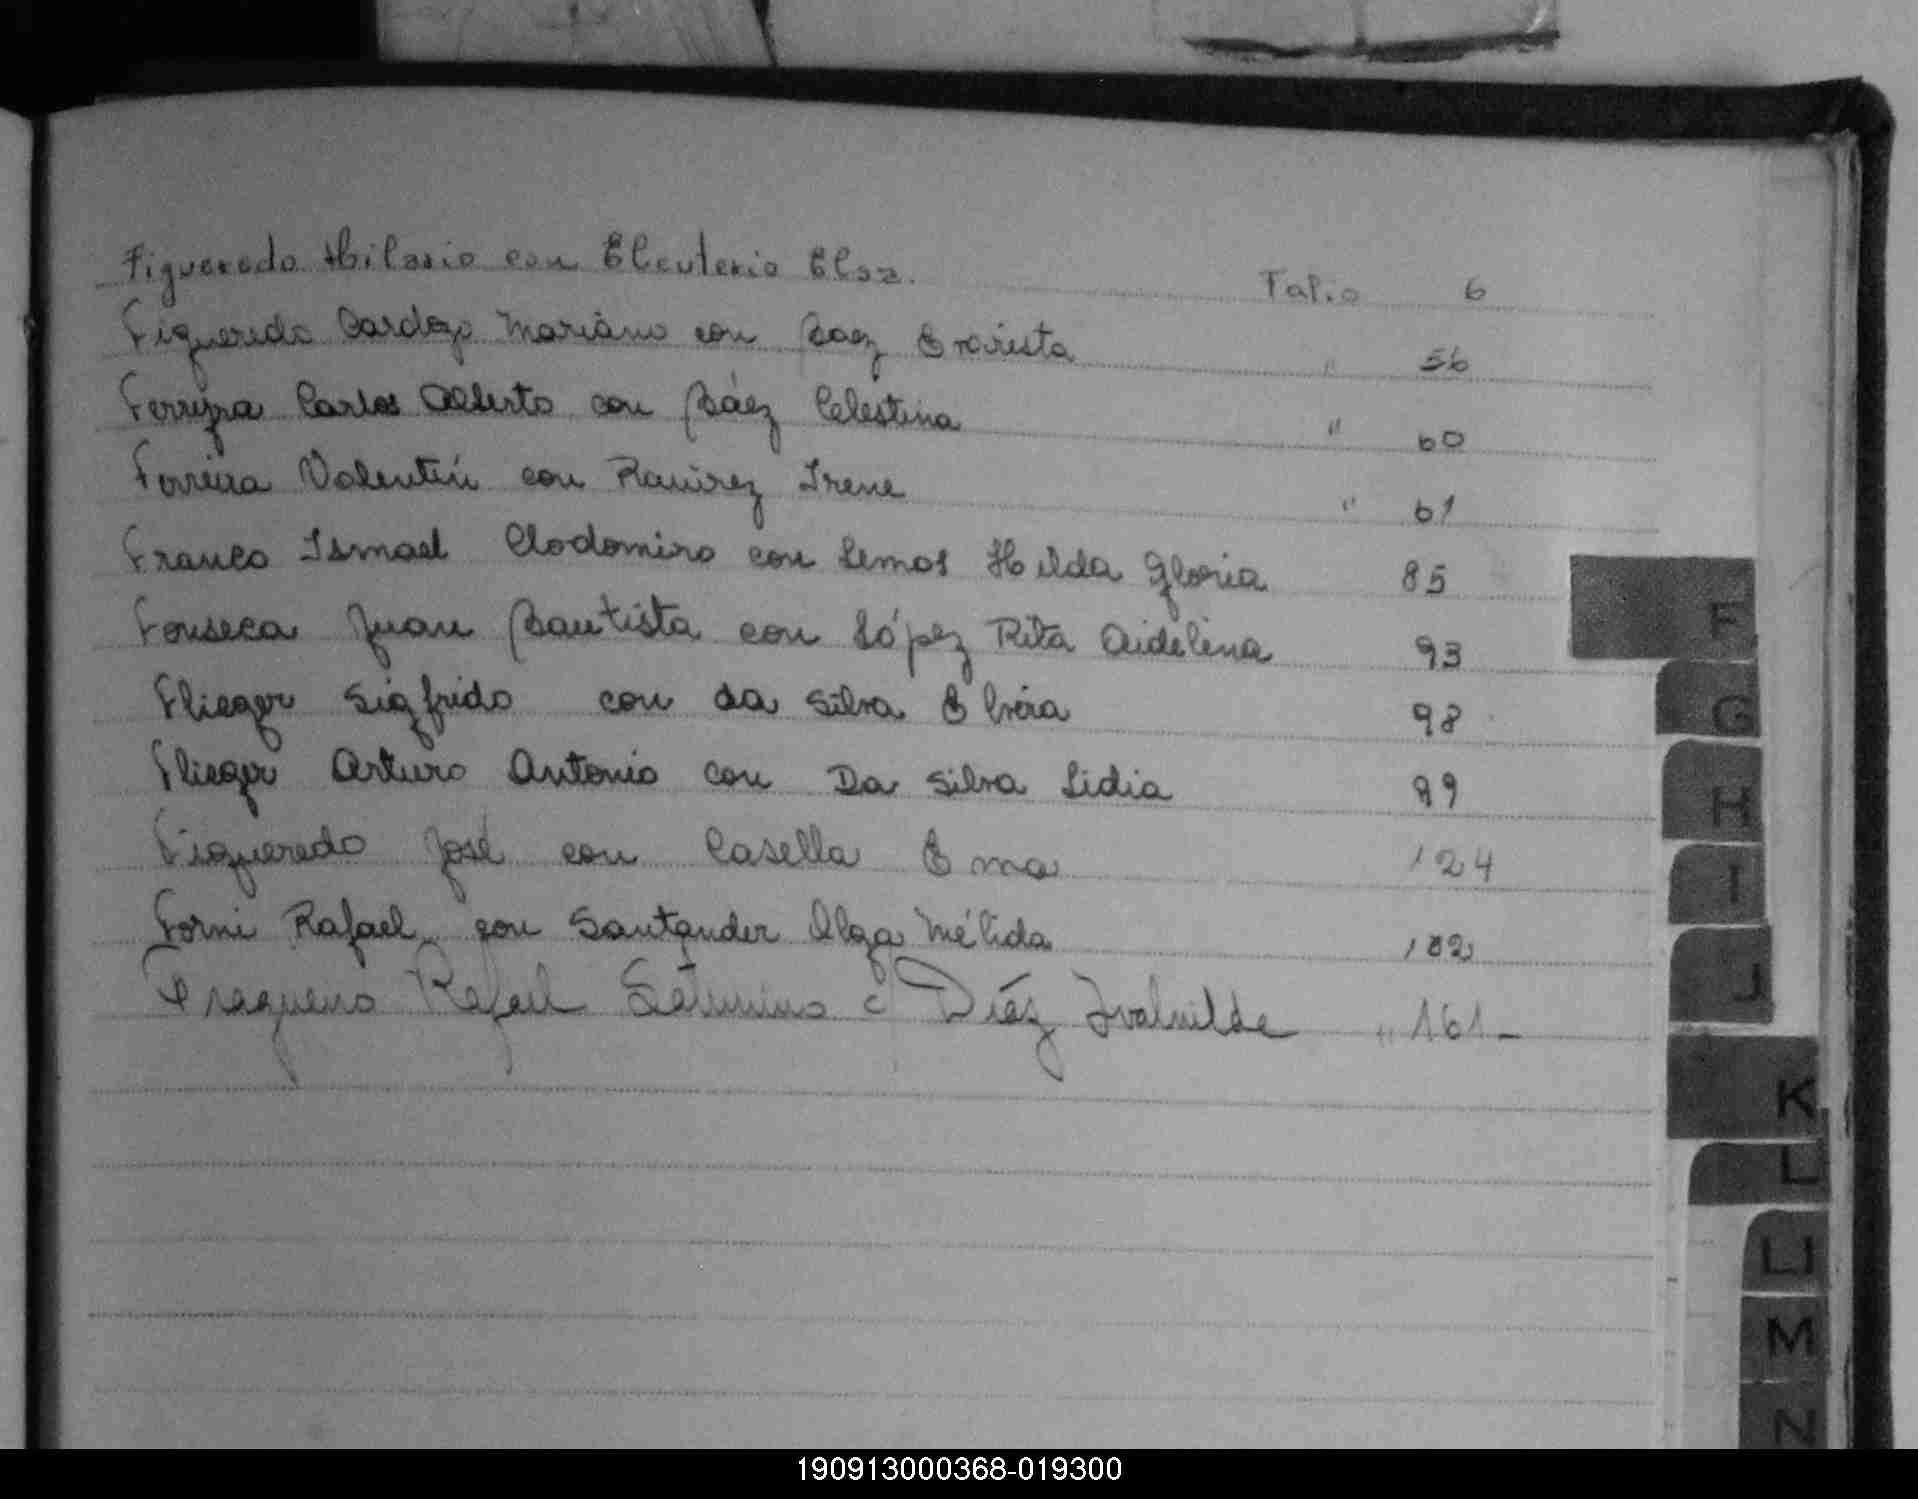 Figueredo Hilario con Eleuterio Elsa. Folio 6
Figueredo Cardozo Mariano con Baez Evarista " 56
Ferreyra Carlos Alberto con Báez Celestina " 60
Ferreira Valentín con Ramirez Irene " 61
Franco Ismael Clodomiro con Lemos Hilda Gloria 85
Fonseca Juan Bautista con López Rita Aidelina 93
Flieger Sigfrido con da Silva Elvira 98
Flieger Arturo Antonio con Da Silva Lidia 99
Figueredo José con Casella Ema 124
Forni Rafael con Santander Olga Mélida
Fraguero Rafael Saturnino c/ Díaz " 161-
F
G
H
I
J
K
L
LL
M
N
190913000368-019300